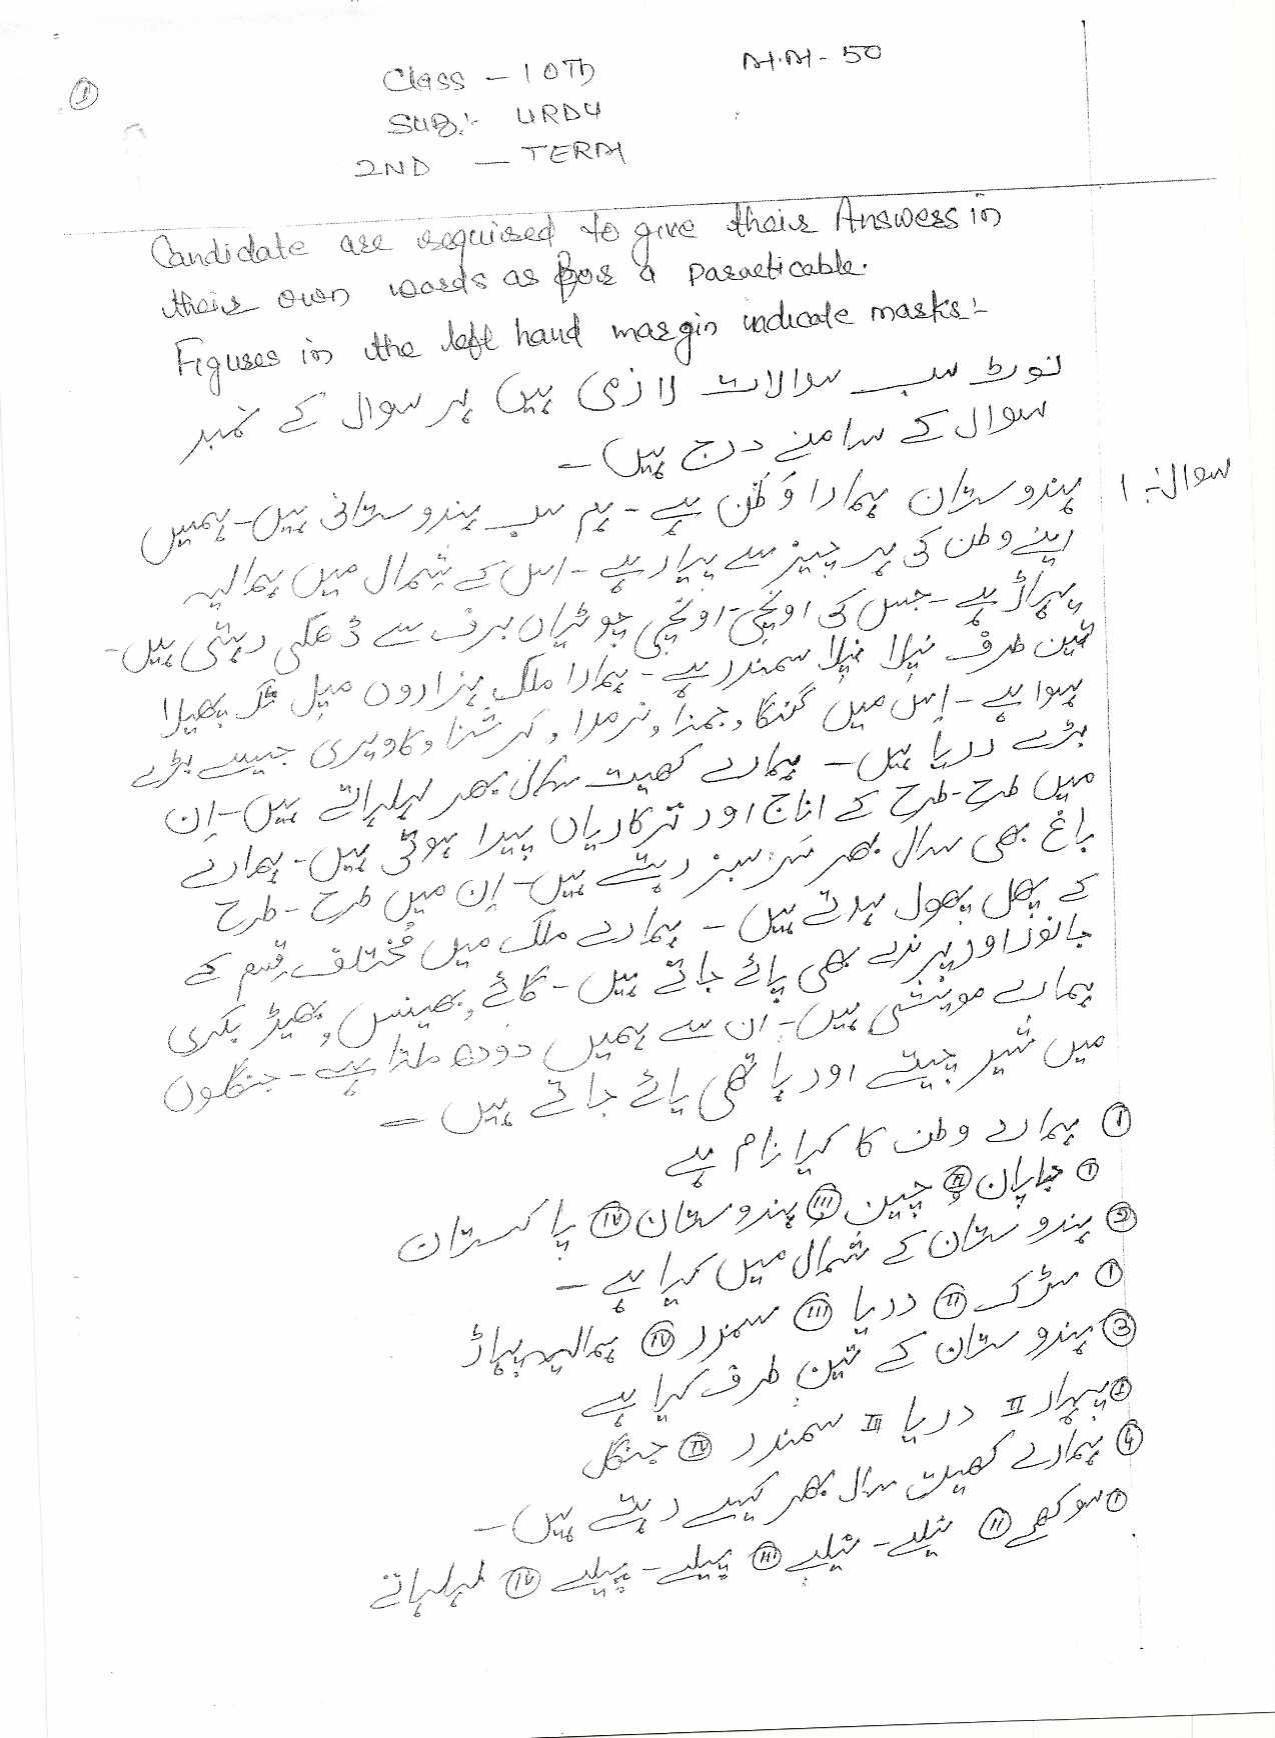 ①
Class - 10Th
M.M - 50
SUB:- URDU
2ND - TERM
Candidate are required to give their Answers in
their own words as for a Paracticable.
Figures in the left hand margin indicate marks:-
نوٹ سب سوالات لازمی ہیں ہر سوال کے نمبر
سوال کے سامنے درج ہیں۔
سوال نمبر 1 ہندوستان ہمارا وَطَن ہے۔ ہم سب ہندوستانی ہیں۔ ہمیں
اپنے وطن کی ہر چیز سے پیار ہے۔ اس کے شِمال میں ہمالیہ
پہاڑ ہے۔ جس کی اونچی۔ اونچی چوٹیاں برف سے ڈھکی رہتی ہیں۔
تین طرف نیلا نیلا سمندر ہے۔ ہمارا ملک ہزاروں میل تک پھیلا
ہوا ہے۔ اِس میں گنگا، جمنا، نرمدا، کرشنا، کاویری جیسے بڑے
بڑے دریا ہیں۔ ہمارے کھیت سال بھر لہلہاتے ہیں۔ اِن
میں طرح۔ طرح کے اناج اور ترکاریاں پیدا ہوتی ہیں۔ ہمارے
باغ بھی سال بھر سَر سبز رہتے ہیں۔ اِن میں طرح۔ طرح
کے پھل پھول ہوتے ہیں۔ ہمارے ملک میں مُختلف قِسم کے
جانور اور پرندے بھی پائے جاتے ہیں۔ گائے، بھینس، بھیڑ بکری
ہمارے مویشی ہیں۔ اُن سے ہمیں دودھ ملتا ہے۔ جنگلوں
میں شیر چیتے اور ہاتھی پائے جاتے ہیں۔
① ہمارے وطن کا کیا نام ہے
① جاپان Ⅱ چین Ⅲ ہندوستان Ⅳ پاکستان
② ہندوستان کے شمال میں کیا ہے۔
① سڑک Ⅱ دریا Ⅲ سمندر Ⅳ ہمالیہ پہاڑ
③ ہندوستان کے تین طرف کیا ہے
① پہاڑ Ⅱ دریا Ⅲ سمندر Ⅳ جنگل
④ ہمارے کھیت سال بھر کیسے رہتے ہیں۔
① سوکھے Ⅱ نیلے۔ نیلے Ⅲ پیلے۔ پیلے Ⅳ لہلہاتے